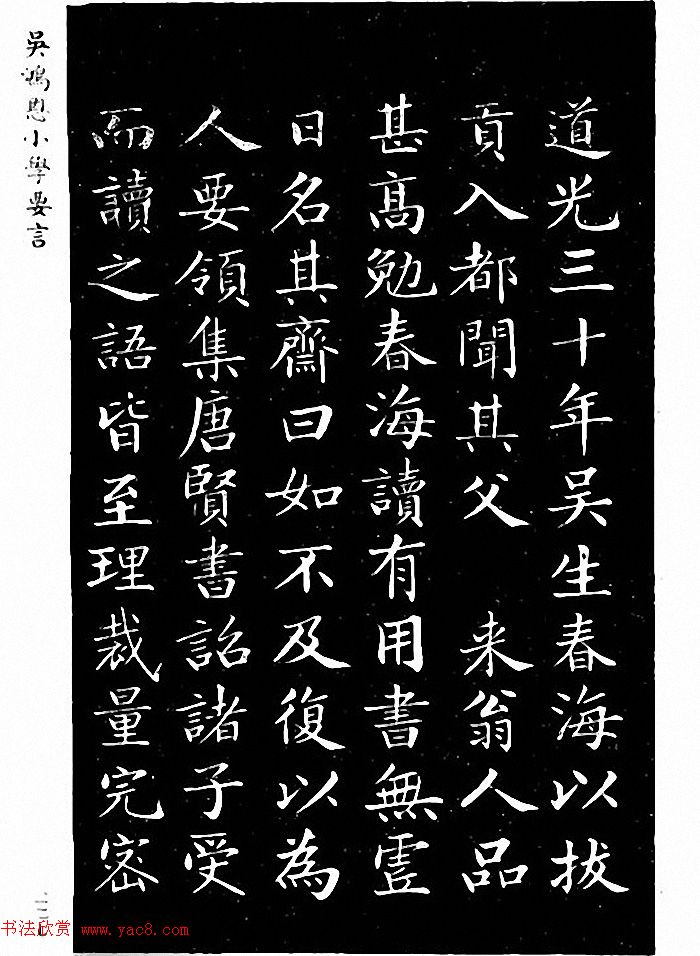 道光三十年吴生春海以拔
貢入都聞其父 来翁人品
甚高勉春海讀有用書無虛
日名其齋曰如不及復以為
人要領集唐賢書詔諸子受
而讀之語皆至理裁量完密
吳鴻恩小學要言
书法欣赏 www.yac8.com